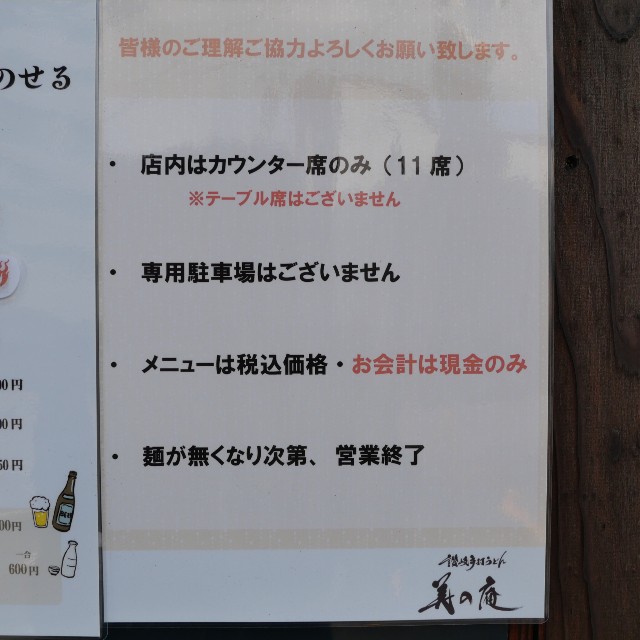 のせる
00円
00円
50円
00円
一合
600円
皆様のご理解ご協力よろしくお願い致します。
・ 店内はカウンター席のみ（11席）
※テーブル席はございません
・ 専用駐車場はございません
・ メニューは税込価格・お会計は現金のみ
・ 麺が無くなり次第、営業終了
讃岐手打うどん
寿の庵